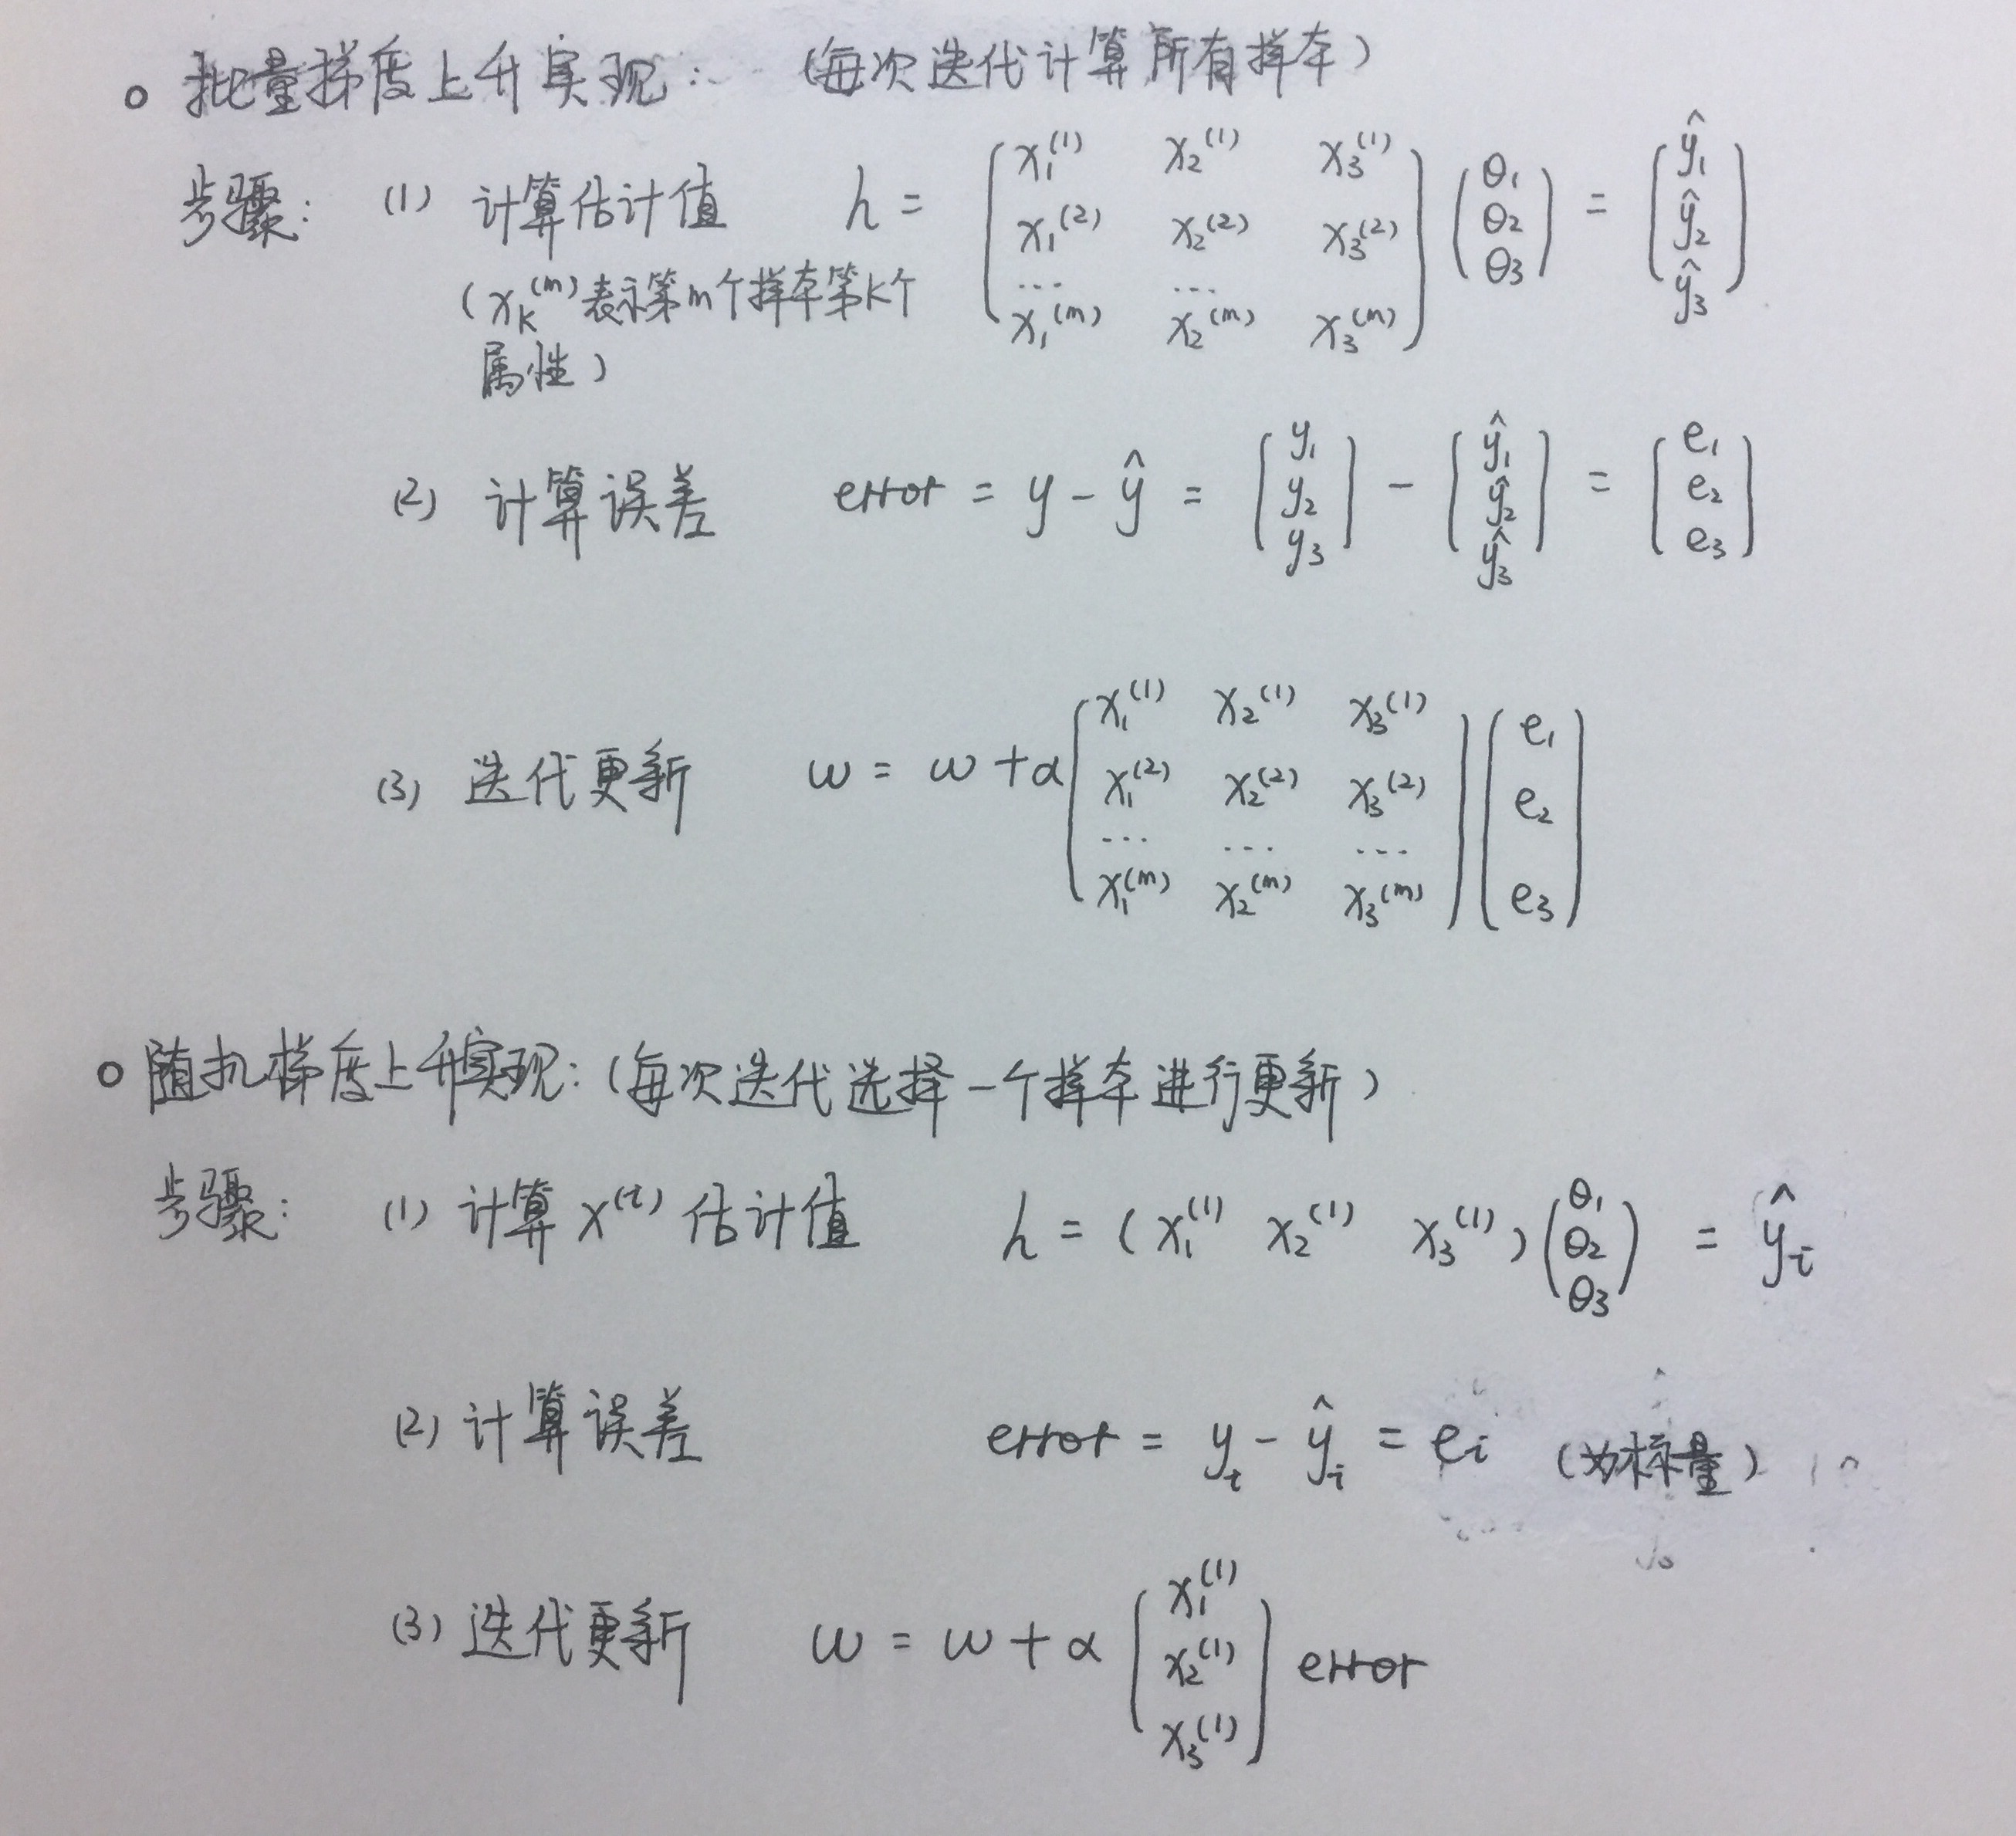 。批量梯度上升实现： （每次迭代计算所有样本）
步骤： (1) 计算估计值 h = \begin{pmatrix} x_1^{(1)} & x_2^{(1)} & x_3^{(1)} \\ x_1^{(2)} & x_2^{(2)} & x_3^{(2)} \\ \cdots & \cdots & \\ x_1^{(m)} & x_2^{(m)} & x_3^{(m)} \end{pmatrix} \begin{pmatrix} θ_1 \\ θ_2 \\ θ_3 \end{pmatrix} = \begin{pmatrix} \hat{y}_1 \\ \hat{y}_2 \\ \hat{y}_3 \end{pmatrix}
（x_k^{(m)}表示第m个样本第K个
属性）
(2) 计算误差 error = y - \hat{y} = \begin{pmatrix} y_1 \\ y_2 \\ y_3 \end{pmatrix} - \begin{pmatrix} \hat{y}_1 \\ \hat{y}_2 \\ \hat{y}_3 \end{pmatrix} = \begin{pmatrix} e_1 \\ e_2 \\ e_3 \end{pmatrix}
(3) 迭代更新 w = w + α \begin{pmatrix} x_1^{(1)} & x_2^{(1)} & x_3^{(1)} \\ x_1^{(2)} & x_2^{(2)} & x_3^{(2)} \\ \cdots & \cdots & \cdots \\ x_1^{(m)} & x_2^{(m)} & x_3^{(m)} \end{pmatrix} \begin{pmatrix} e_1 \\ e_2 \\ e_3 \end{pmatrix}
。随机梯度上升实现：（每次迭代选择一个样本进行更新）
步骤： (1) 计算 x^{(i)} 估计值 h = (x_1^{(1)} x_2^{(1)} x_3^{(1)}) \begin{pmatrix} θ_1 \\ θ_2 \\ θ_3 \end{pmatrix} = \hat{y}_i
(2) 计算误差 error = y_i - \hat{y}_i = e_i （为标量）
(3) 迭代更新 w = w + α \begin{pmatrix} x_1^{(1)} \\ x_2^{(1)} \\ x_3^{(1)} \end{pmatrix} error